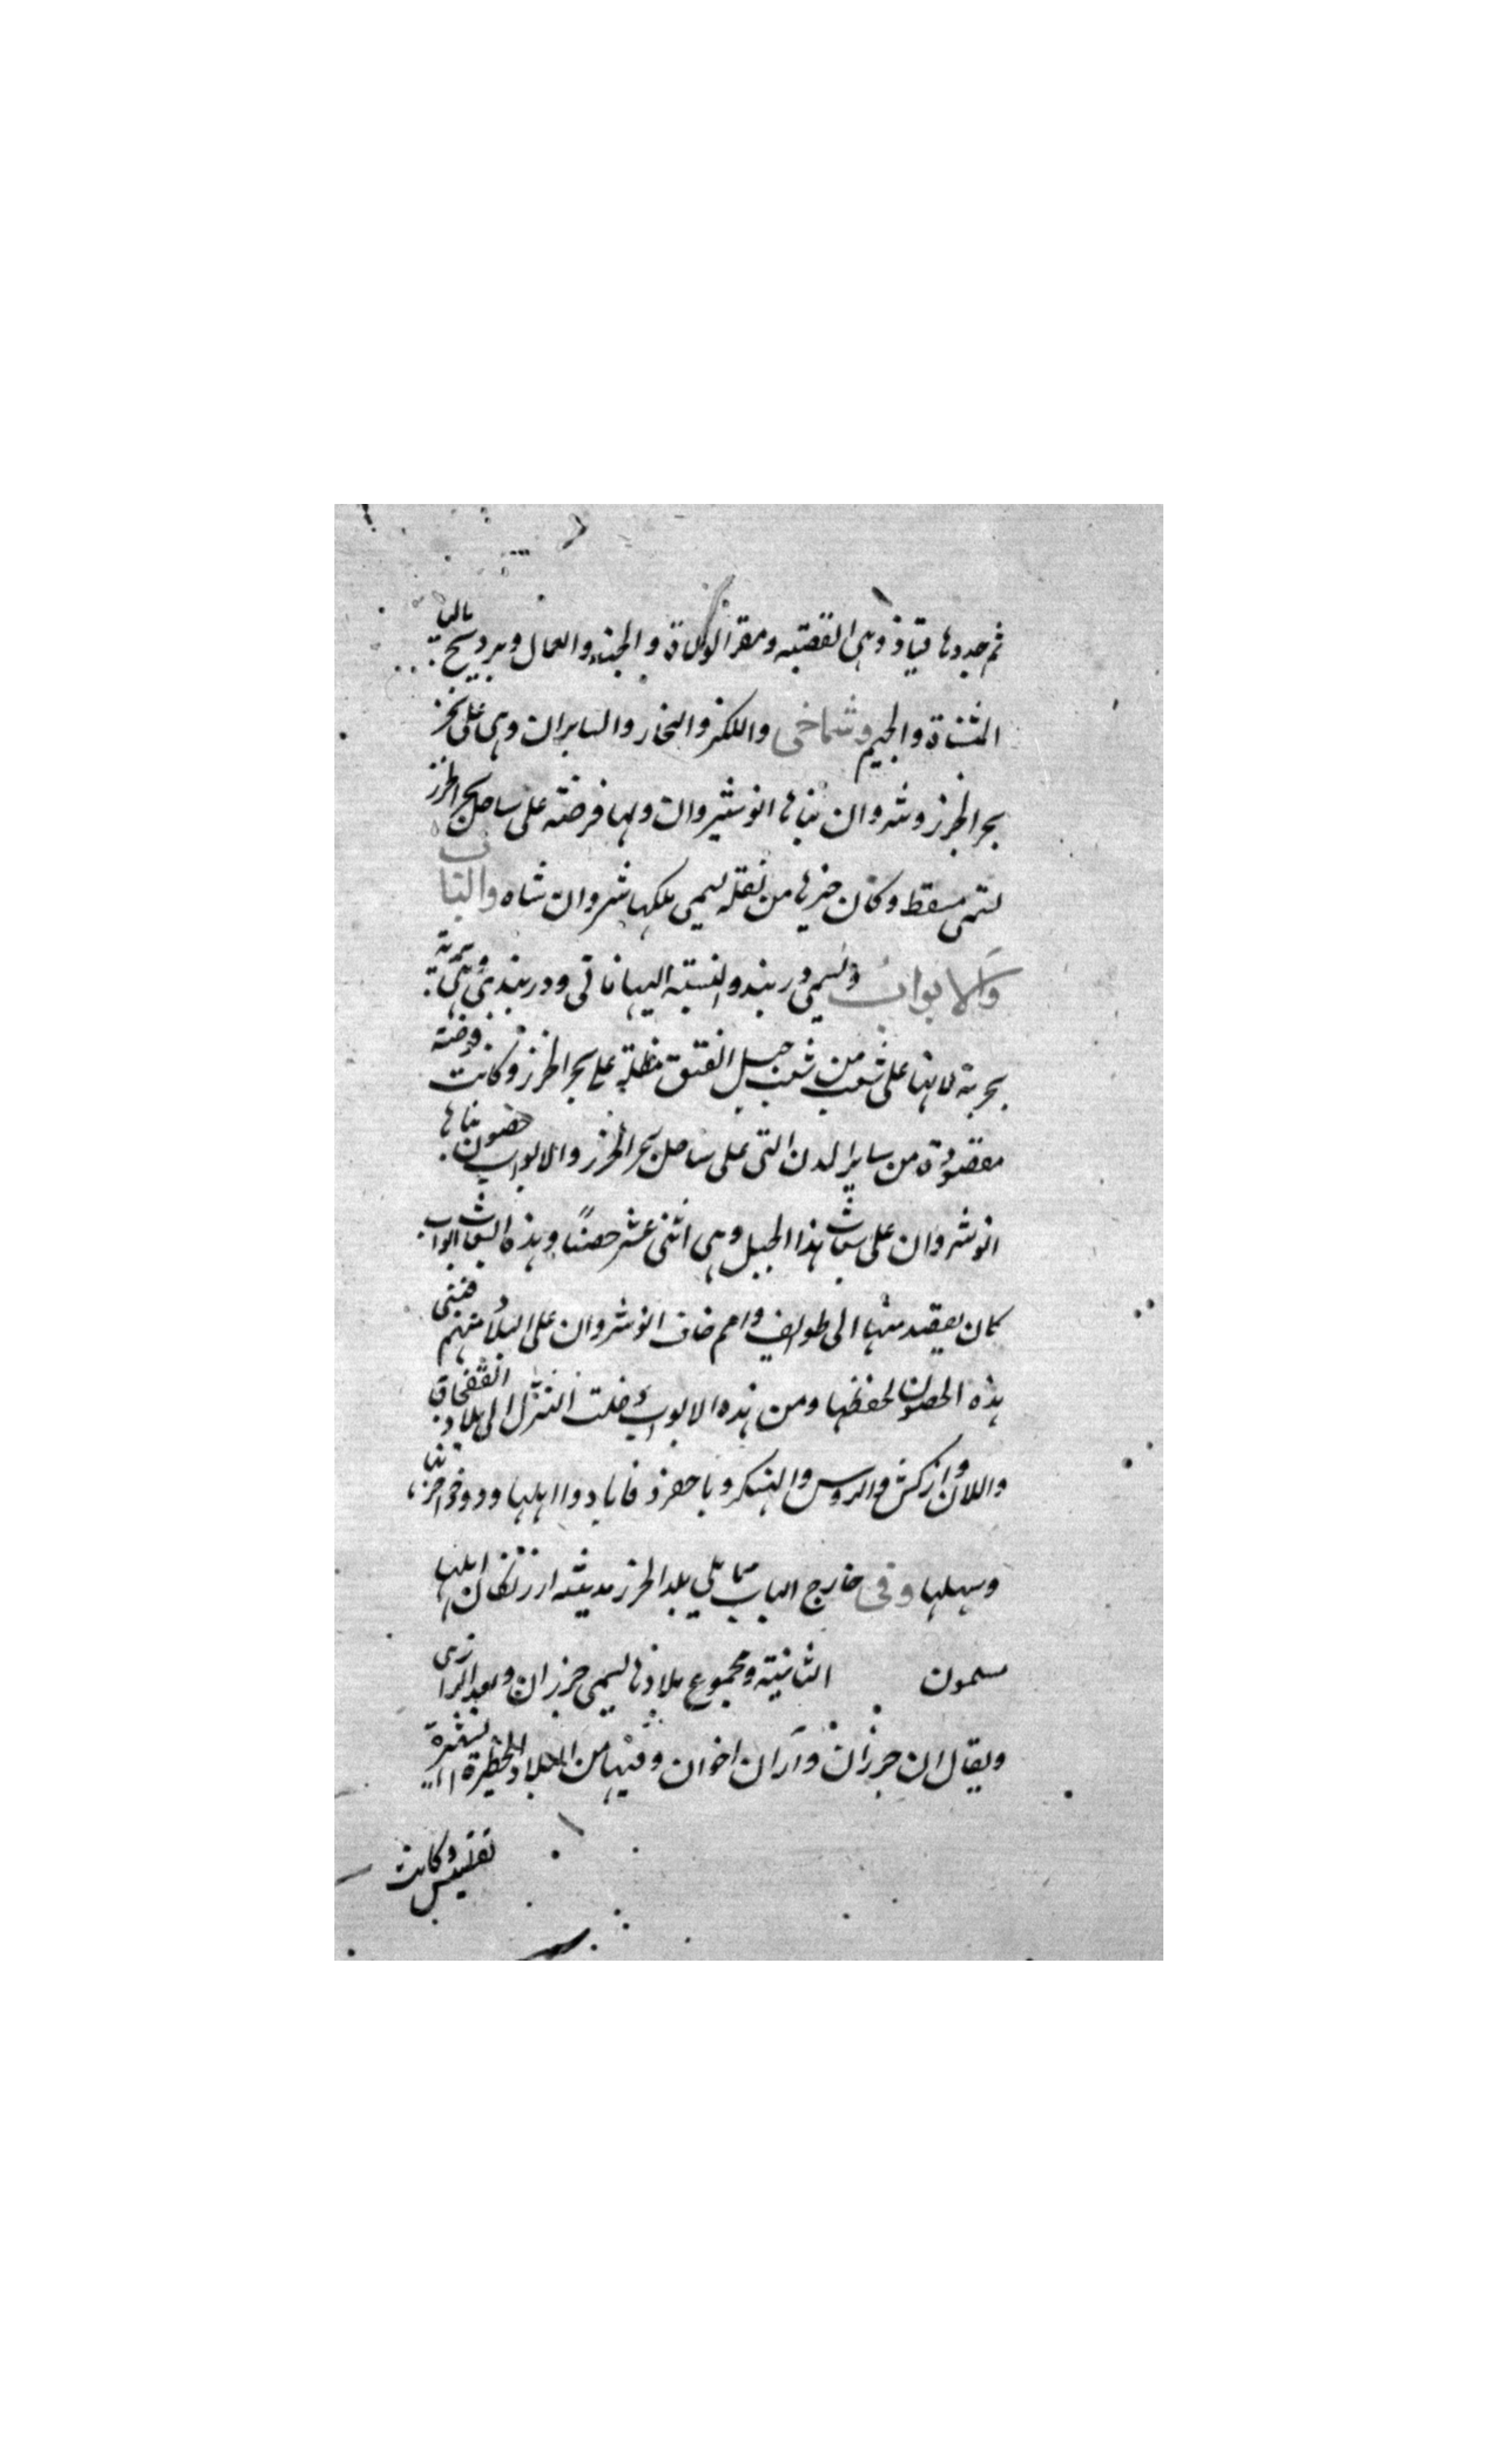 ثم جددها قباذ وهى القصبه ومقر الولاة والجند والعمال وبرديج بالبا
المثناة والجيم وشماخى واللكز والنخار والسابران وهى على نحر
بحر الخزر وشروان بناها انوشيروان ولها فرضة على ساحل بحر الخزر
تسمى مسقط وكان خيرها من نقله يسمى ملكها شروان شاه والباب
والابواب وتسمى دربند والنسبة اليها بابى ودربندى وهى برية
بحرية لانها على شعب من شعب جبل الفتق مطلة على بحر الخزر وكانت فرضة
مقصودة من ساير المدن التى على ساحل بحر الخزر والابواب حصون بناها
انوشروان على شعاب هذا الجبل وهى اثنى عشر حصنا وهذه الشعاب ابواب
كان يصعد منها الى طوايف وامم خاف انوشروان على البلاد منهم فبنى
هذه الحصون لحفظها ومن هذه الابواب دخلت التتر الى بلاد القفجاق
واللان وازكش والروس والهنكر وباحفرد فابادوا اهلها ودوخوا حزنها
وسهلها وفى خارج الباب مما يلى بلد الخزر مدينة ارزنكان اهلها
مسلمون الثانية ومجموع بلادها يسمى جرزان وبعد الرا زى
ويقال ان جرزان وآران اخوان وفيها من البلاد الخطيرة الشهيرة
تفليس وكانت